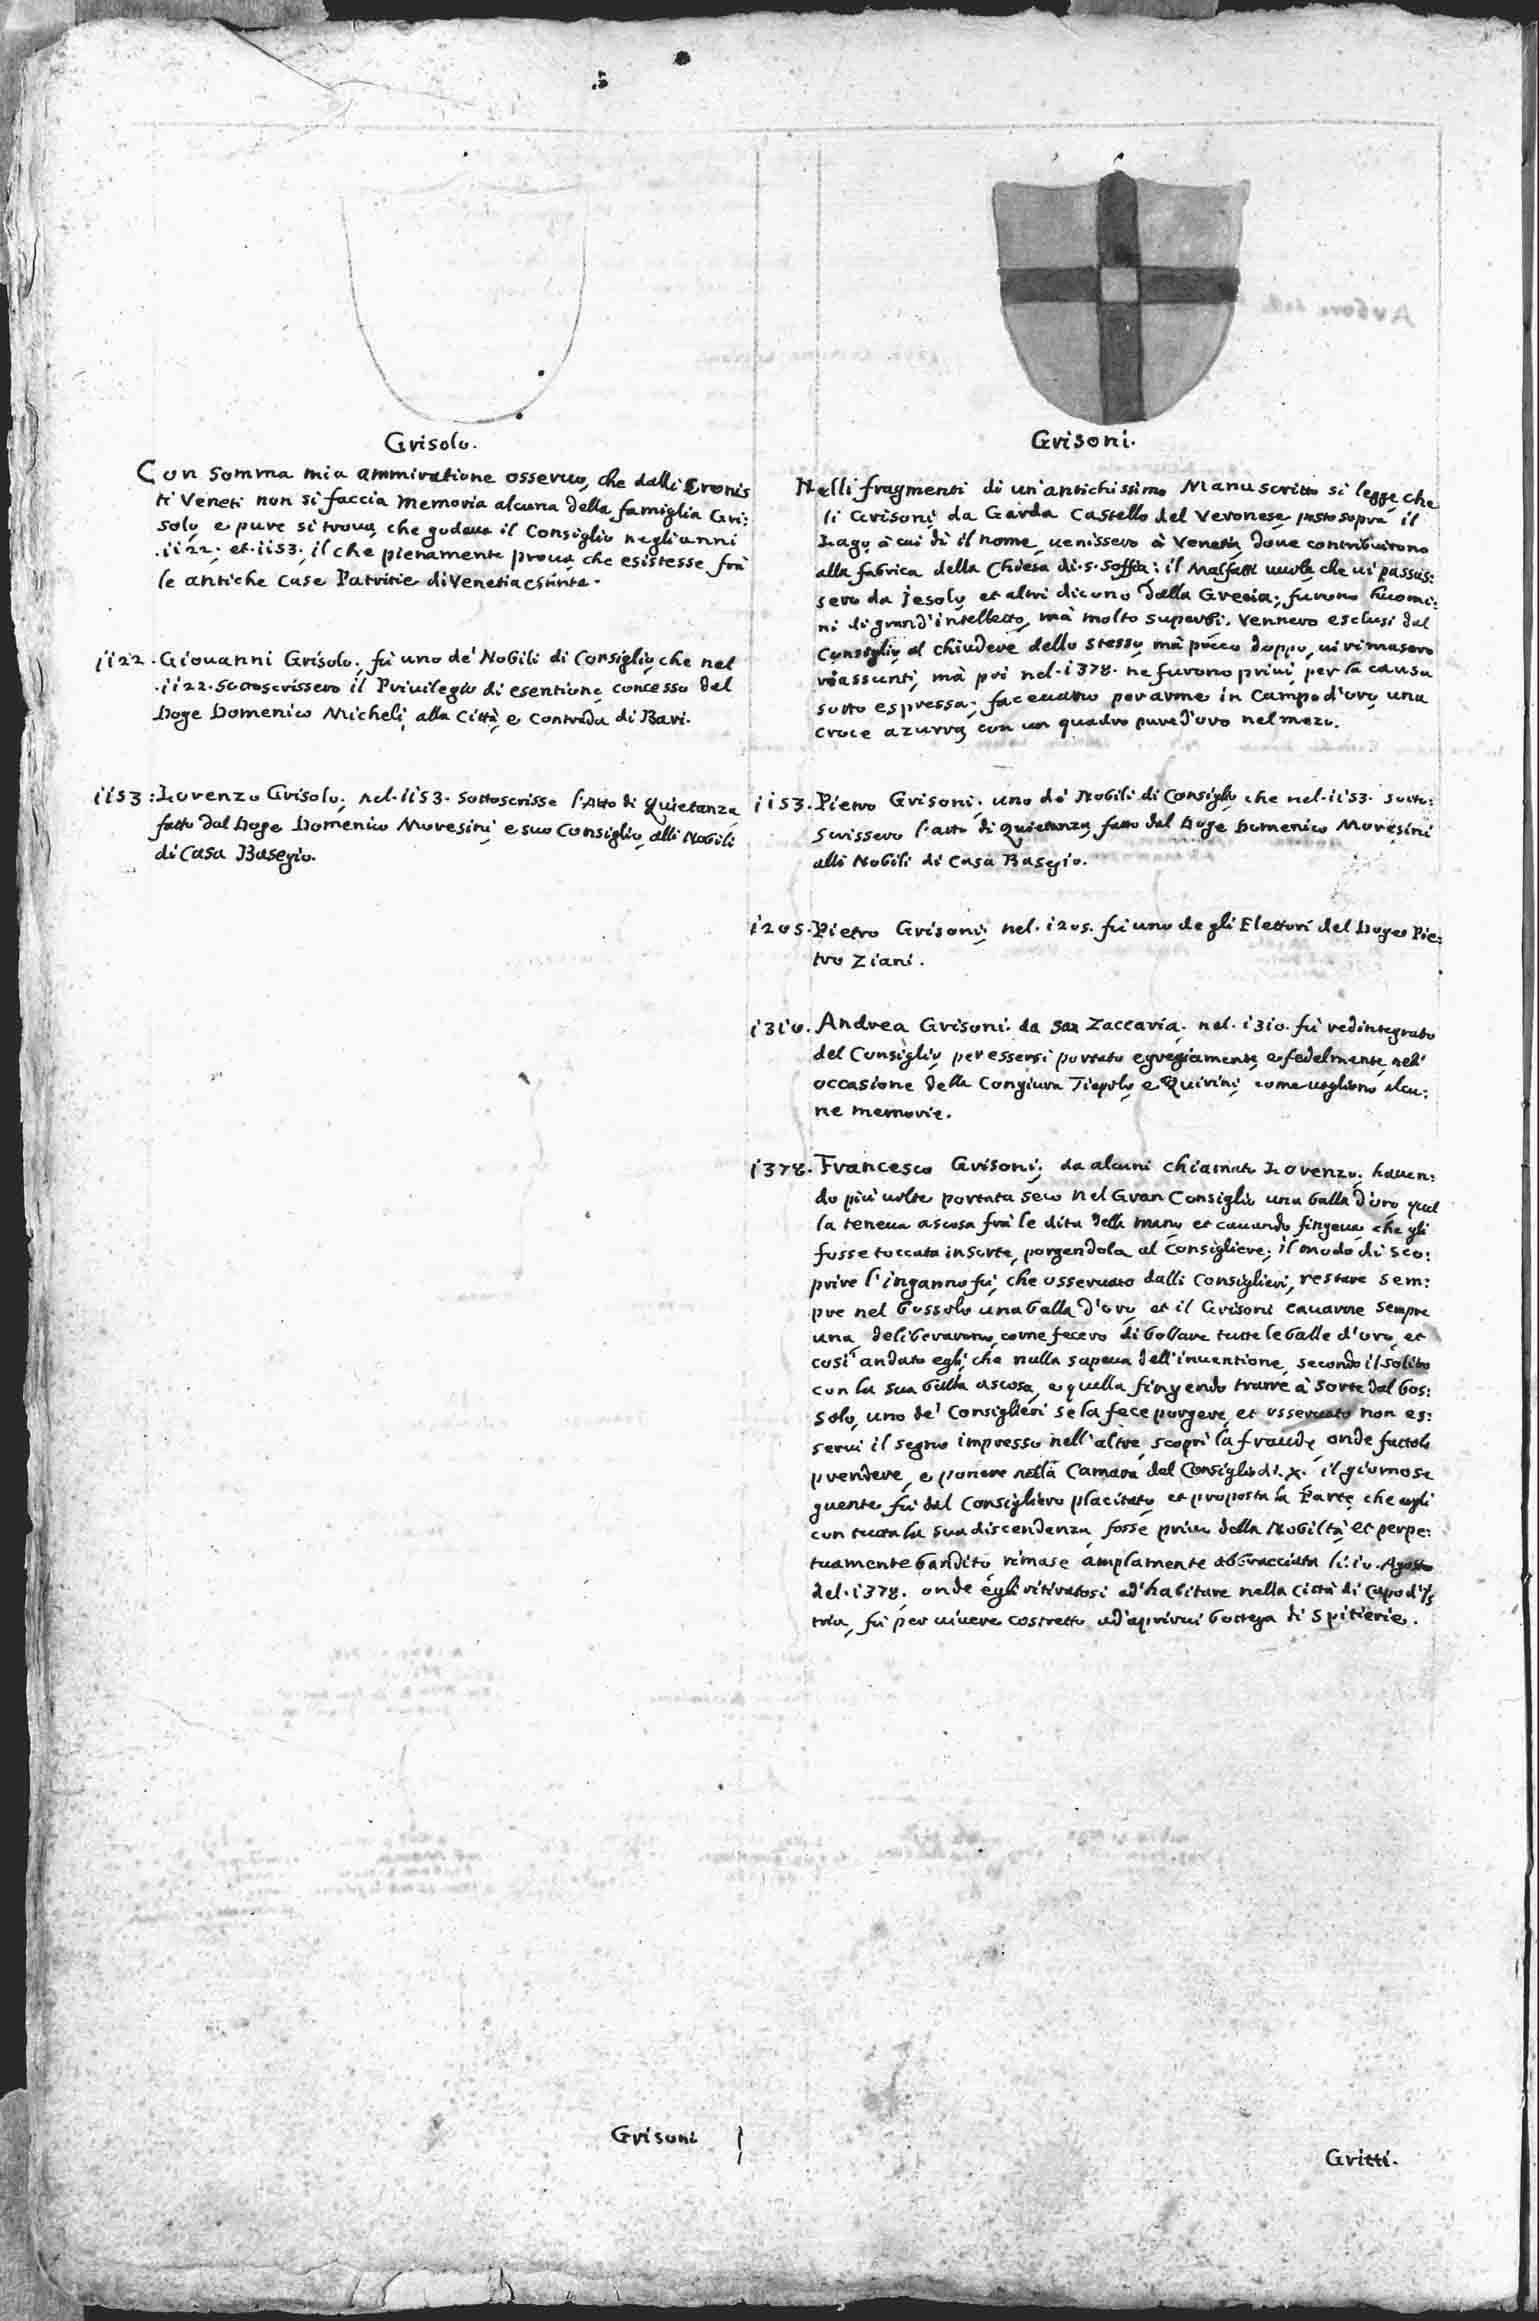 Grisolo.
Con somma mia ammiratione osservo, che dalli Cronis
ti Veneti non si faccia memoria alcuna della famiglia Gri:
solo, e pure si trova, che godeva il Consiglio negli anni
.1122. et .1153. il che pienamente prova, che esistesse frà
le antiche Case Patritie di Venetia estinte.
1122. Giovanni Grisolo, fù uno de' Nobili di Consiglio, che nel
.1122. sottoscrissero il Privilegio di esentione, concesso dal
Doge Domenico Micheli, alla Città, e Contrada di Bari.
1153: Lorenzo Grisolo, nel .1153. sottoscrisse l'Atto di Quietanza
fatto dal Doge Domenico Moresini, e suo Consiglio, alli Nobili
di Casa Basegio.
Grisoni
Grisoni.
Nelli fragmenti di un'antichissimo Manuscritto si legge, che
li Grisoni da Garda Castello del Veronese posto sopra il
Lago, à cui dì il nome, venissero à Venetia, dove contribuirono
alla fabrica della Chiesa di .S. Soffia: il Malfatti vuole che vi passas:
sero da Jesolo, et altri dicono dalla Grecia; furono huomi:
ni di grand'intelletto, mà molto superbi. Vennero esclusi dal
Consiglio al chiudere dello stesso, mà poco doppo, vi rimasero
riassunti, mà poi nel .1378. ne furono privi, per la causa
sotto espressa; facevano per arme in Campo d'oro, una
croce azurra, con un quadro pure d'oro nel mezo.
1153. Pietro Grisoni, uno de' Nobili di Consiglio che nel .1153. sotto:
scrissero l'atto di Quietanza, fatto dal Doge Domenico Moresini
alli Nobili di Casa Basegio.
1205. Pietro Grisoni, nel .1205. fù uno degli Elettori del Doge Pie:
tro Ziani.
1310. Andrea Grisoni da San Zaccaria, nel .1310. fù redintegrato
del Consiglio, per essersi portato egregiamente, e fedelmente nell'
occasione della Congiura Tiepolo, e Quirini, come vogliono alcu:
ne memorie.
1378. Francesco Grisoni, da alcuni chiamato Lorenzo, haven:
do più volte portata seco nel Gran Consiglio una balla d'oro, qual
la teneva ascosa frà le dita della mano, et cavando fingeva, che gli
fosse toccata in sorte, porgendola al Consigliere; il modo di sco:
prire l'inganno fù, che osservato dalli Consiglieri, restare sem:
pre nel bossolo una balla d'oro, et il Grisoni cavarne sempre
una, deliberarono, come fecero di bollare tutte le balle d'oro, et
così andato egli, che nulla sapeva dell'inventione, secondo il solito
con la sua balla ascosa, e quella fingendo trarre à sorte dal bos:
solo, uno de' Consiglieri se la fece porgere, et osservato non es:
servi il segno impresso nell'altre, scoprì la fraude, onde fattolo
prendere, e ponere nella Camara del Consiglio di .X. il giorno se
guente fù dal Consigliero placitato, et proposta la Parte, che egli
con tutta la sua discendenza, fosse privo della Nobiltà, et perpe:
tuamente bandito, rimase amplamente abbracciata li .10. Agosto
del .1378. onde egli ritiratosi ad'habitare nella Città di Capo d'Is
tria, fù per vivere costretto ad'aprirvi bottega di Spitierie.
Gritti.